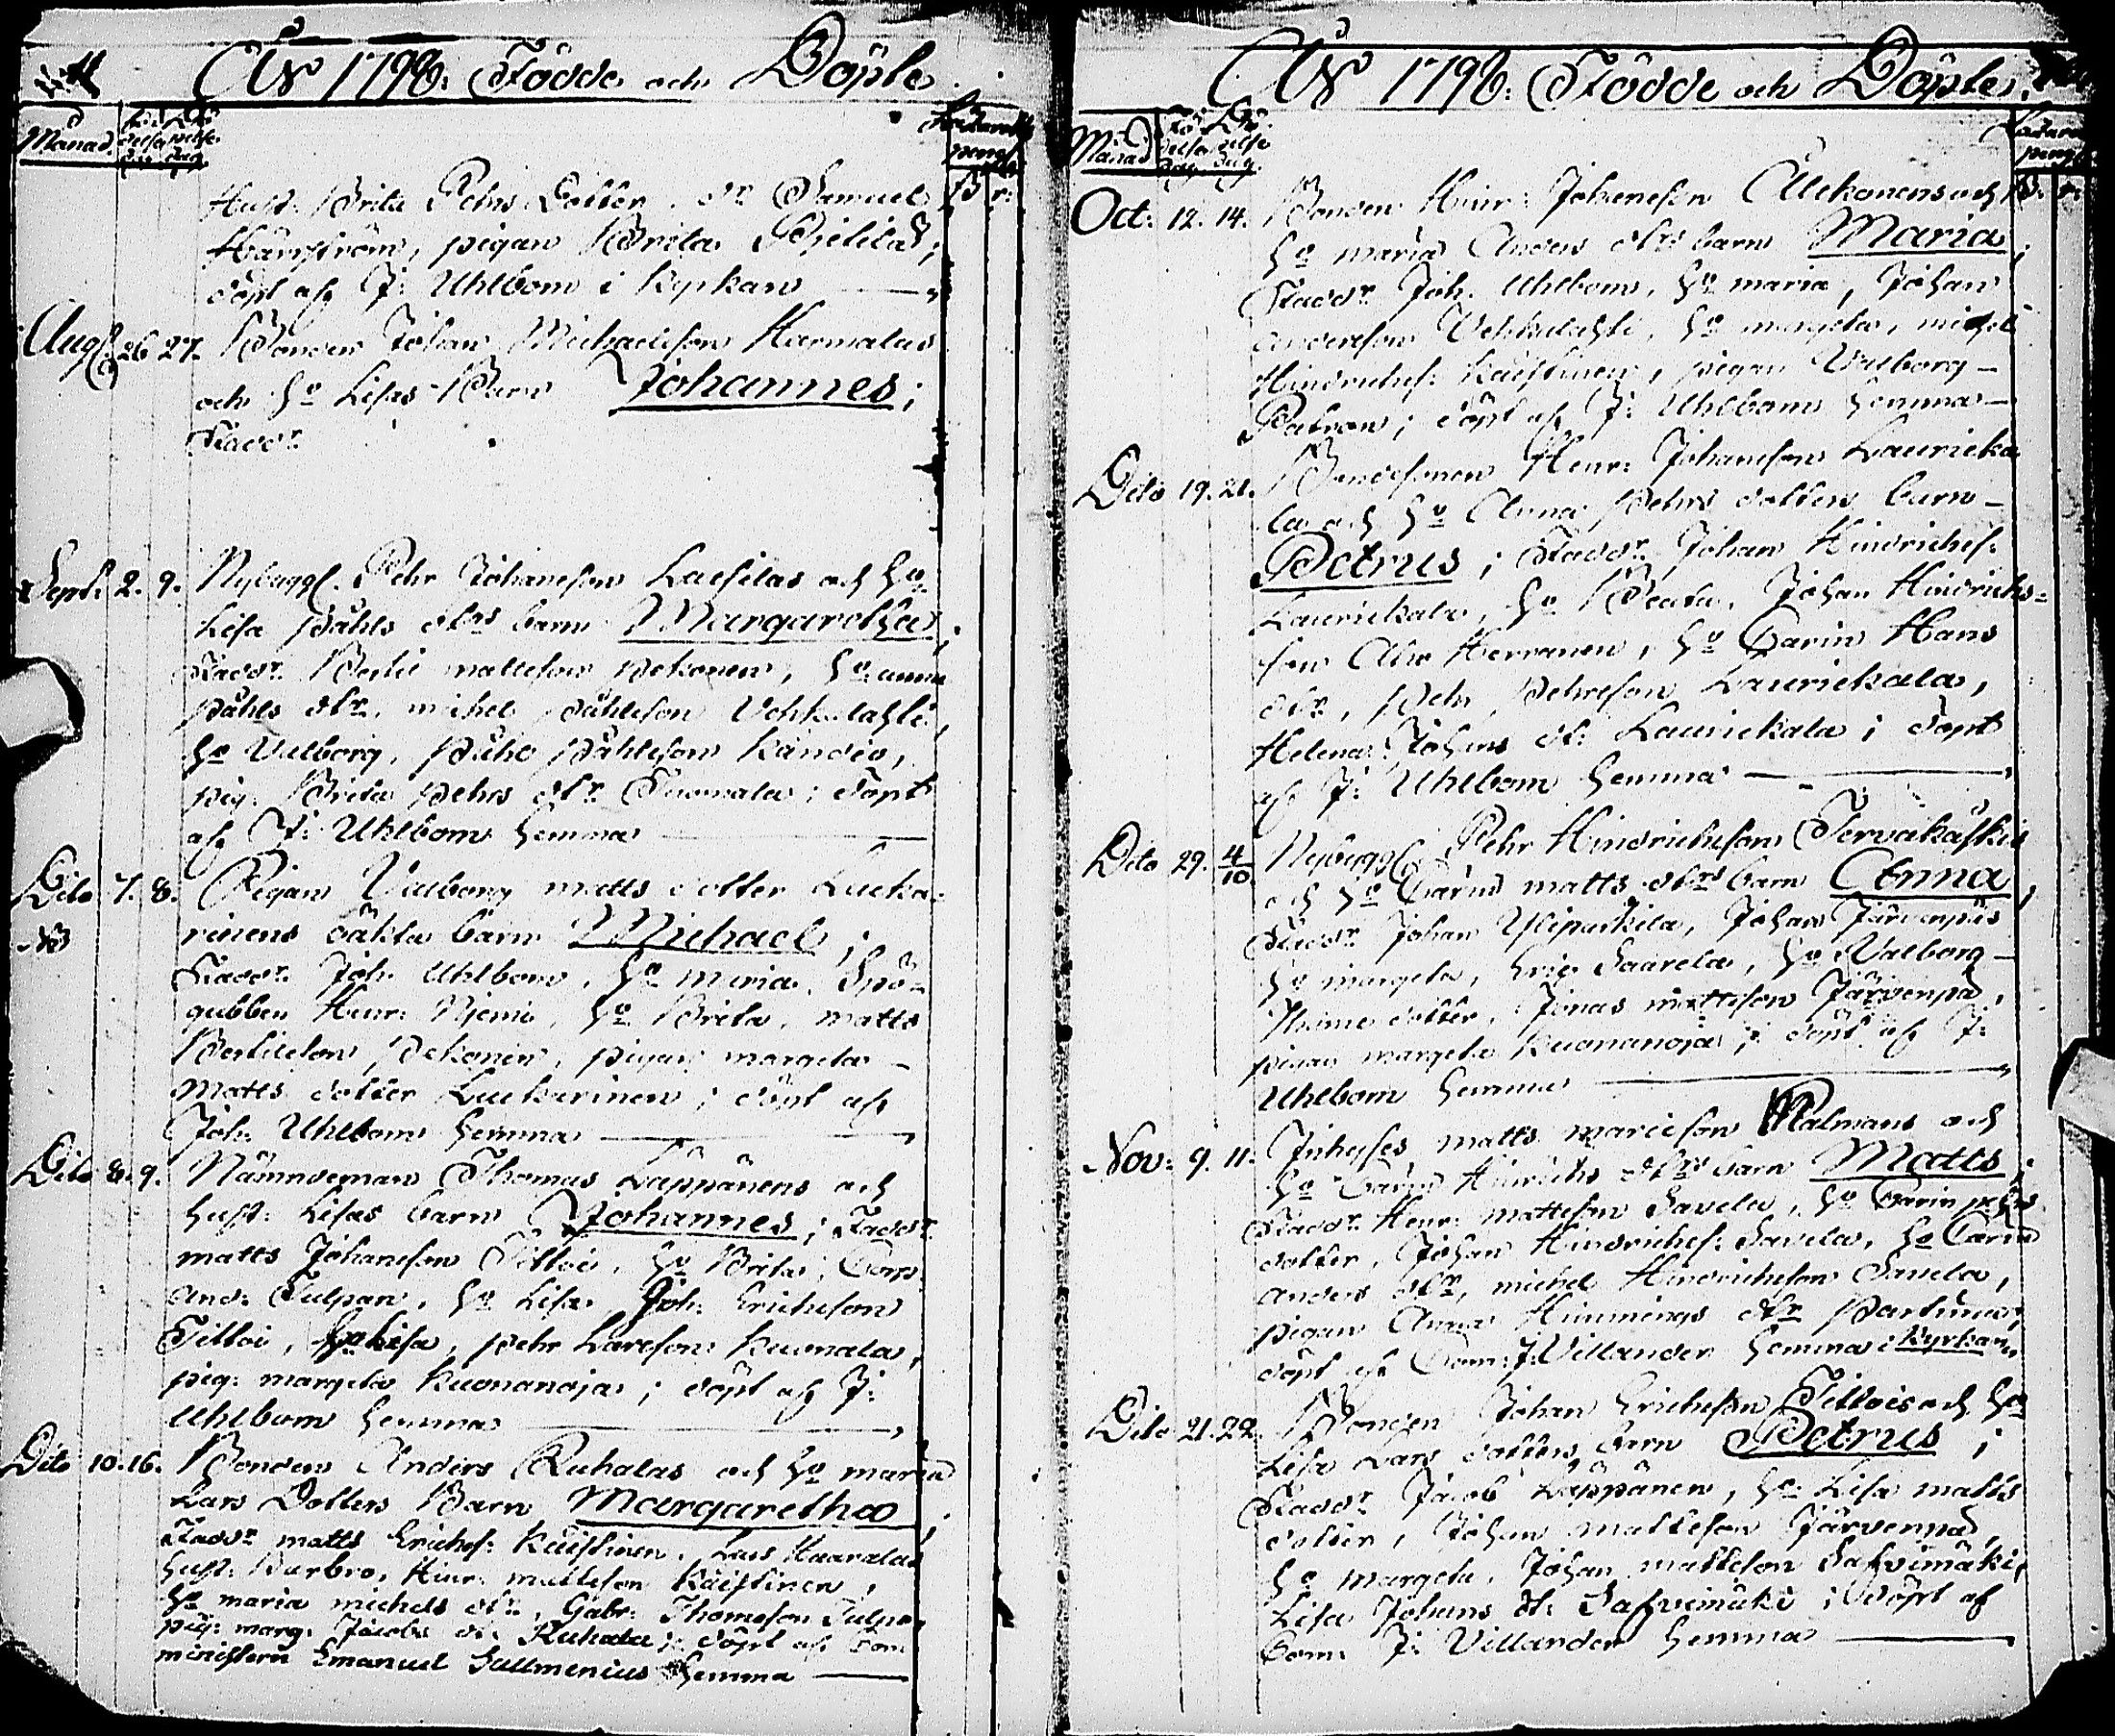 År 1796. Födde och Döpte
Månad.
Hust. Brita Pehrs Dotter. Dr Samuel
Härström, pigan Brita
döpt af J. Uhlbom i Kyrkan
Aug. 26 27. Bonden Johan Michaelsson Harmalas
och Ho Lisas Barn Johannes;
Faddr
Sept. 2. 9. Nybygg. Pehr Johansson och Ho
Lisa Påhls dtrs barn Margaretha;
Faddr Bertil mattsson Pekonen, Ho anna
Påhls dtr, michel Påhlsson Vehkalahti,
Ho Valborg, Påhl Påhlsson
pig. Brita Pehrs dtr Tuomala; döpt
af J. Uhlbom hemma
Dito 7. 8. Pigan Valborg matts dotter Lucka-
rinens oäkta barn Michael;
Faddr Joh. Uhlbom, Ho maria,
gubben Henr. Niemi, Ho Brita, matts
Bertilsson Pekonen, pigan margeta
Matts dotter Luckarinen; döpt af
Joh. Uhlbom hemma
Dito 8. 9. Nämndeman Thomas Läppänens och
hust. Lisas barn Johannes; Faddr
matts Johansson Tilloi, Ho Brita, Corp.
And. Tulpan, Ho Lisa, Joh. Erichsson
Tilloi, Ho Lisa, Pehr Larsson Kuonala,
pig. margeta Kuonanoja; döpt af J.
Uhlbom hemma
Dito 10. 16. Bonden Anders Ruhalas och Ho maria
Lars Dotters Barn Margaretha
Faddr matts Erichs. Käistinen, Lars Haaralas
hust. Barbro, Hinr. mattsson Käistinen,
Ho maria michels dtr, Gabr. Thomsson Tulpo,
pig. marg. Jacobs d. Ruhala; döpt af Com-
ministern Emanuel Hemma
År 1796. Födde och Döpte
Månad
Oct. 12. 14. Bonden Hinr. Johansson Ollikonens och
Ho maria Anders dtrs barn Maria;
Faddr Joh. Uhlbom, Ho maria, Johan
Andersson Vehkalahti, Ho margeta, michel
Hindrichs. Käistinen, pigan Valborg
Patron; döpt af J. Uhlbom hemma
Dito 19. 21. Bondesonen Henr. Johansson Lauricka-
la och Ho Anna Pehrs dotters barn
Petrus; Faddr Johan Hindrichs.
Laurickala, Ho Beata, Johan Hindrichs-
son Herranen, Ho Carin Hans
dtr, Pehr Pehrsson Laurickala,
Helena Johans dt. Laurickala; döpt
af J. Uhlbom hemma
Dito 29. 4/10. Nybygg. Pehr Hindrichsson Tervakaski
och Ho Carins matts dtrs barn Anna;
Faddr Johan Ylipärkilä, Johan Järvenpää
Ho margeta, Eric Saarela, Ho Valborg
Thomas dotter, Jonas mattsson Järvenpä,
pigan margeta Kuonanoja; döpt af J.
Uhlbom hemma
Nov. 9. 11. Inhyses matts Malmans och
Ho Carins Hinrichs dtrs barn Matts;
Faddr Henr. mattsson Savela, Ho Carin Pehrs
dotter, Johan Hindrichs. Savela, Ho Carin
Anders dtr, michel Hindrichsson Savela,
pigan Anna Hemmings dtr Partunen,
döpt af Com. J. Villander hemma i Kyrkan
Dito 21. 22. Bonden Johan Erichsson Tillois och Ho
Lisa Lars dotters barn Petrus;
Faddr Jacob Läppänen, Ho Lisa matts
dotter, Johan mattsson Järvenpä,
Ho margeta, Johan mattsson Safvimäki,
Lisa Johans dt. Safvimäki; döpt af
Com. J. Villander hemma